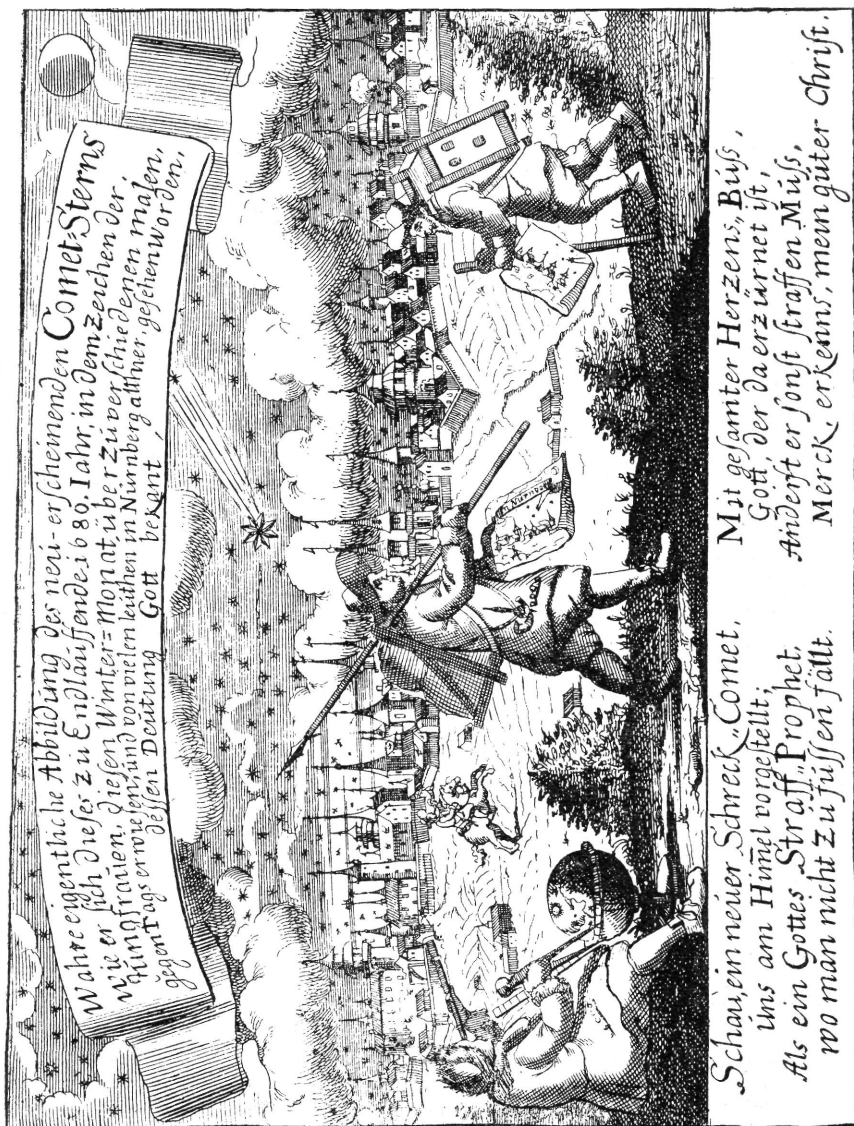 Wahre eigentliche Abbildung des neü-erscheinenden Comet-Sterns
Wie er sich dieser zu Endlauffende 1680. Iahr, in dem Zeichen der
Jungfrauen, diesen Winter=monat, über zu verschiedenen malen,
gegen Tags erwiesen, und von vielen leuthen in Nürnberg allhier gesehen worden,
dessen Deutung Gott bekant,
Nürnberg
Schau, ein neüer Schreck„Comet,
üns am Him̄el vorgestellt;
Als ein Gottes Straff„Prophet.
wo man nicht Zu füssen fällt.
Mit gesamter Herzens„Büss,
Gott, der da erzürnet ist,
Anderst er sonst straffen Müss,
Merck erkenns, mein güter Christ.